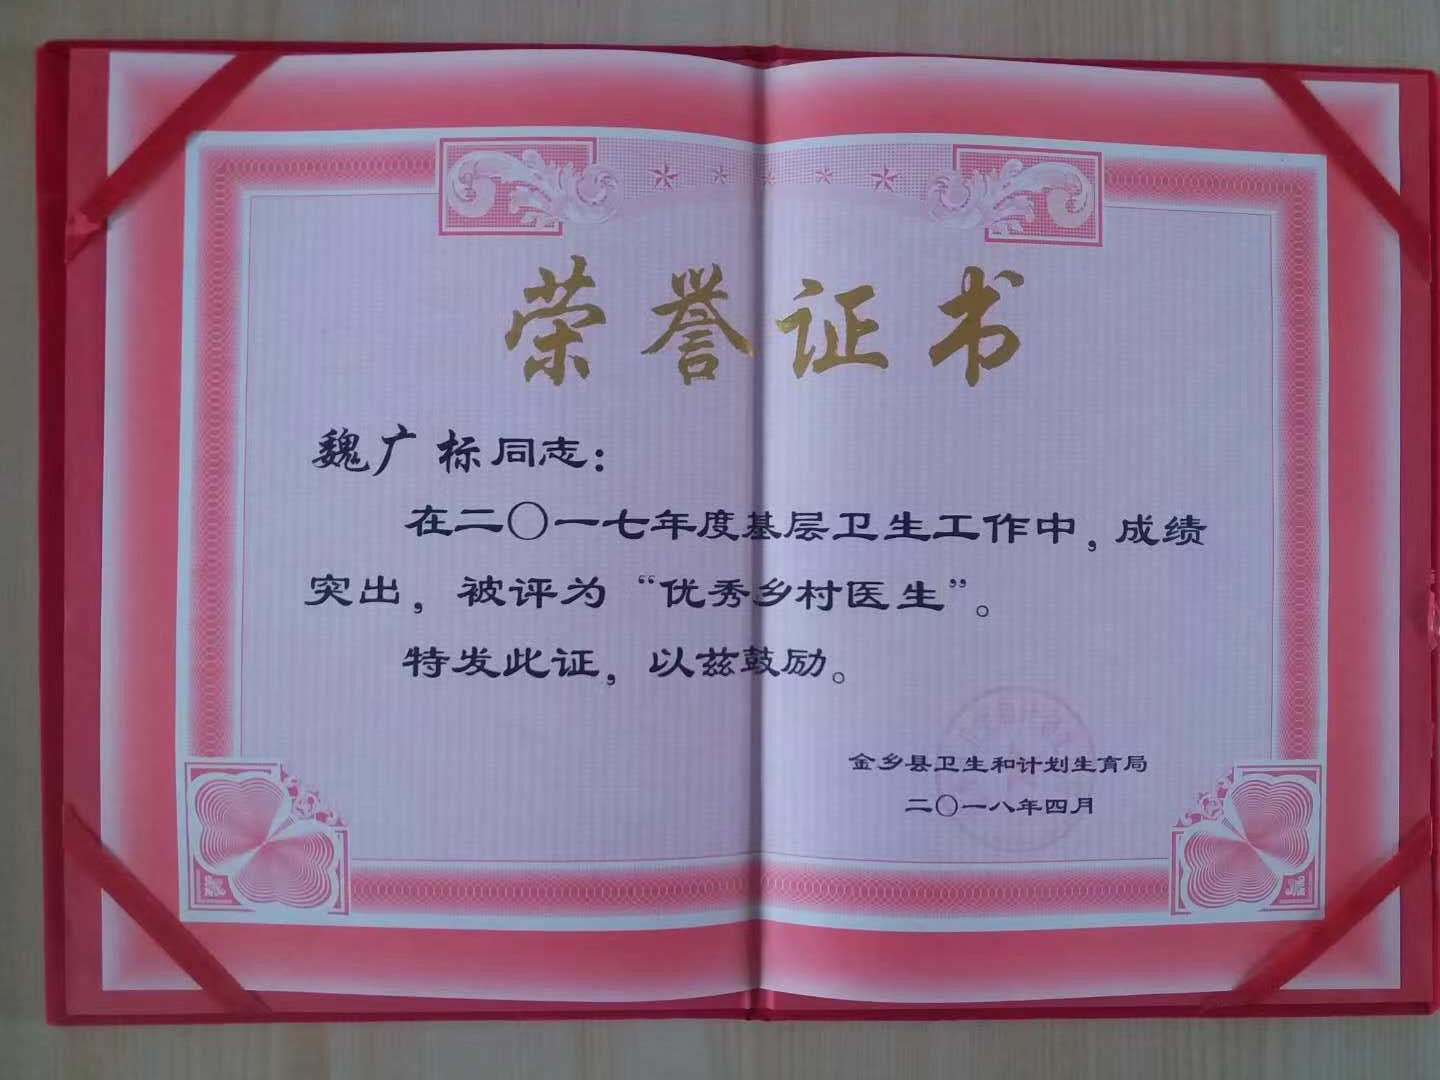 荣誉证书
魏广标同志：
在二〇一七年度基层卫生工作中，成绩
突出，被评为“优秀乡村医生”。
特发此证，以兹鼓励。
金乡县卫生和计划生育局
二〇一八年四月